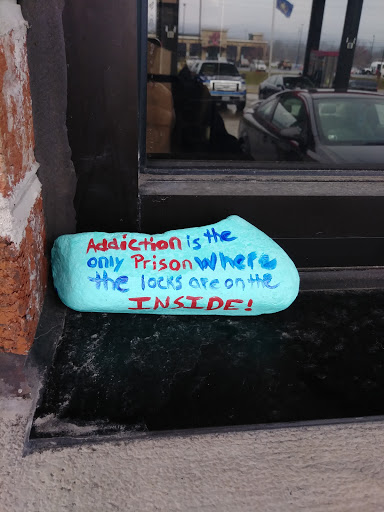 Addiction is the
only Prison where
the locks are on the
INSIDE!